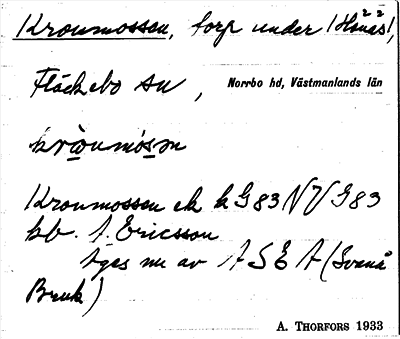 Kronmossen, torp under /Honäs/,
Fläckebo sn, Norrbo hd, Västmanlands län
Kronmossen ek kG83NVG83
kb. A. Ericsson
Äges nu av ASEA (Svanå
Bruk)
A. THORFORS 1933